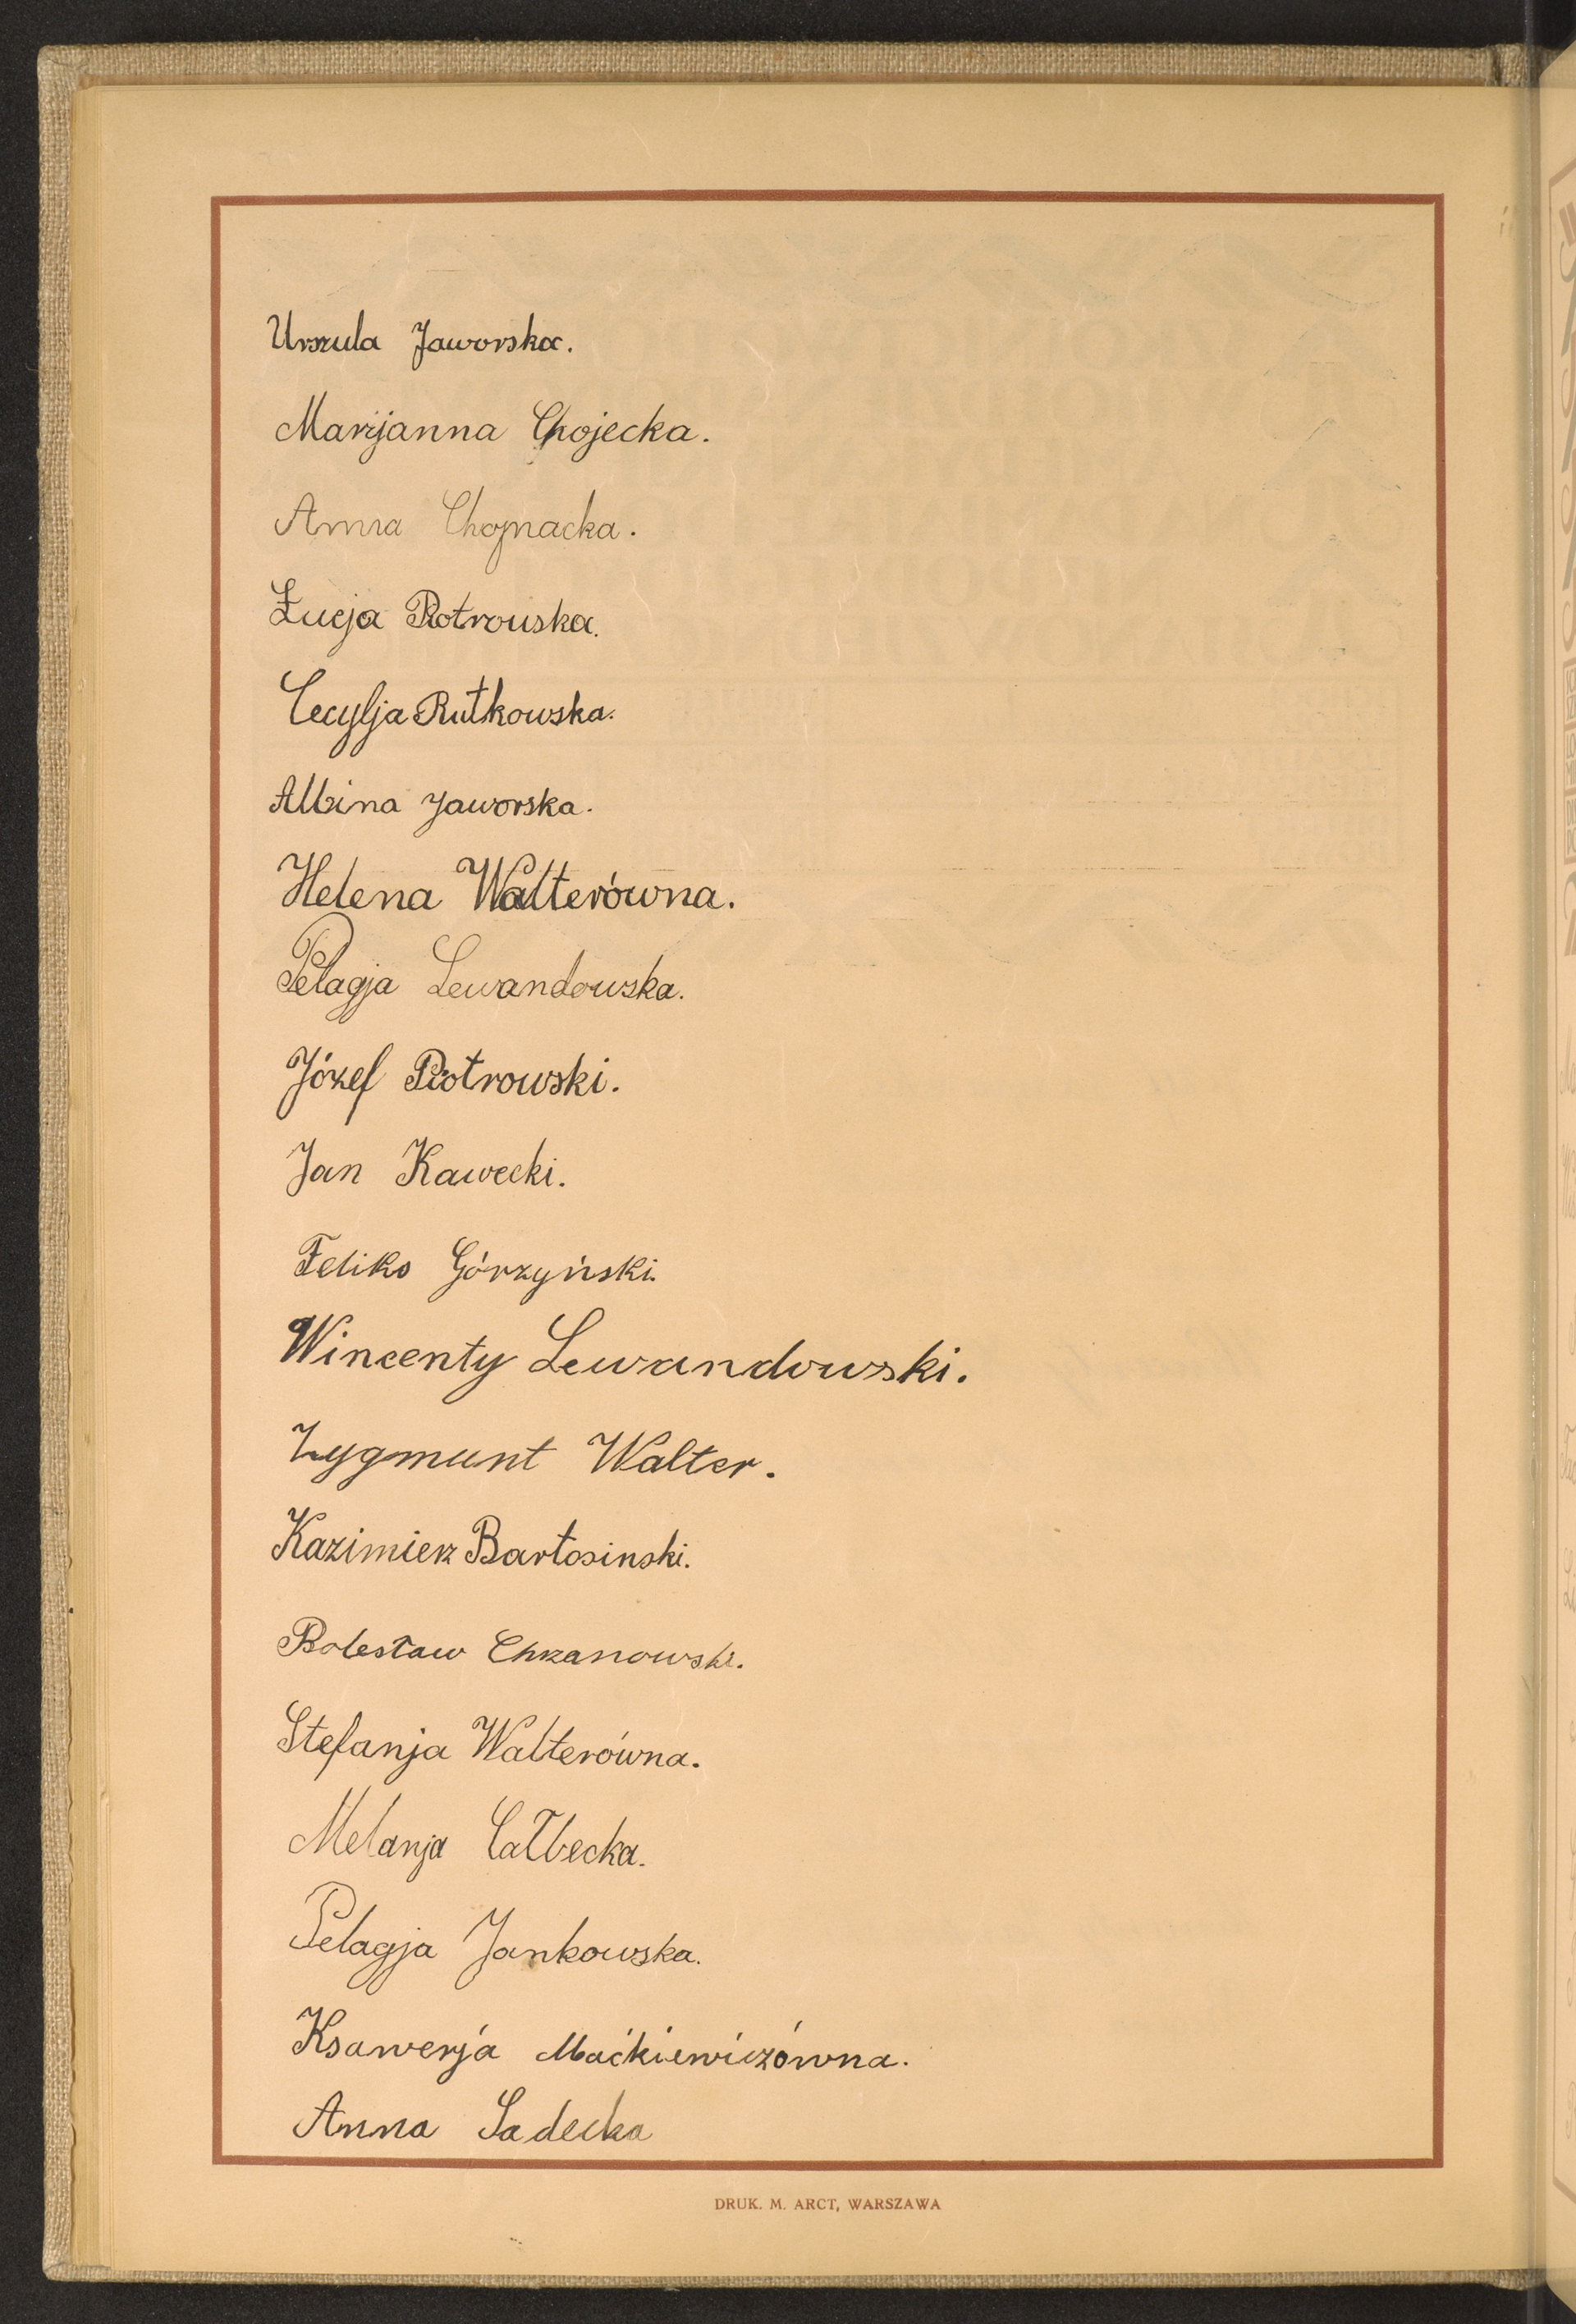 Urszula Jaworska.
Marijanna Chojecka.
Anna Chojnacka.
Łucja Piotrowska.
Cecylja Rutkowska.
Albina Jaworska.
Helena Walterówna.
Pelagja Lewandowska.
Józef Piotrowski.
Jan Kawecki.
Feliks Górzyński.
Wincenty Lewandowski.
Zygmunt Walter.
Kazimierz Bartosinski.
Bolesław Chzanowski.
Stefanja Walterówna.
Melanja Całbecka.
Pelagja Jankowska.
Ksawerja Maćkiewiczówna.
Anna Sadecka
DRUK. M. ARCT, WARSZAWA